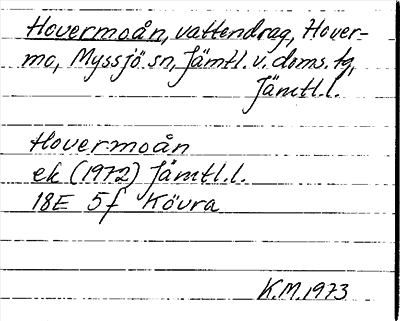 Hovermoån, vattendrag, Hover-
mo, Myssjö sn, Jämtl. v. doms. tg,
Jämtl.l.
Hovermoån
ek (1972) Jämtl.l.
18E 5f Kövra
K.M. 1973